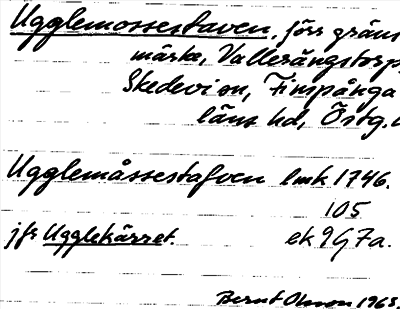 Ugglemossestaven, förr gräns
märke, Vallerängstorp,
Skedevi sn, Finspånga
läns hd, Östg.
Ugglemåssestafven lmk 1746.
105
jfr Ugglekärret. ek 9G7a.
Bernt Olsson 1963.